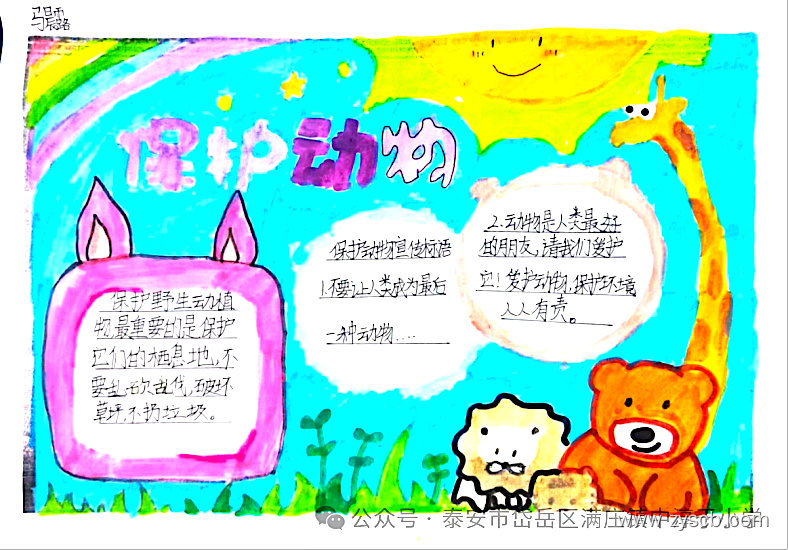 马晨露
保护动物
保护野生动植
物,最重要的是保护
它们的栖息地,不
要乱砍乱伐,破坏
草坪,不扔垃圾。
保护动物宣传标语
1.不要让人类成为最后
一种动物....
2.动物是人类最好
的朋友,请我们爱护
它!爱护动物,保护环境
人人有责。
公众号·泰安市岱岳区满庄镇
www.zyscb.com